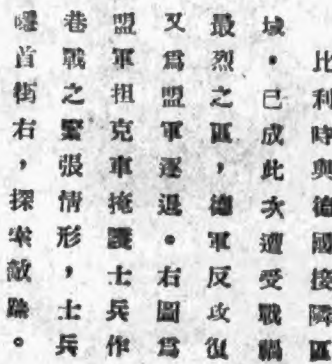 比利時與德國接隣區
域。已成此次遭受戰禍
最烈之區，德軍反攻復
又爲盟軍逐退。右圖爲
盟軍担克車掩護士兵作
巷戰之緊張情形，士兵
匿首街右，探索敵踪。